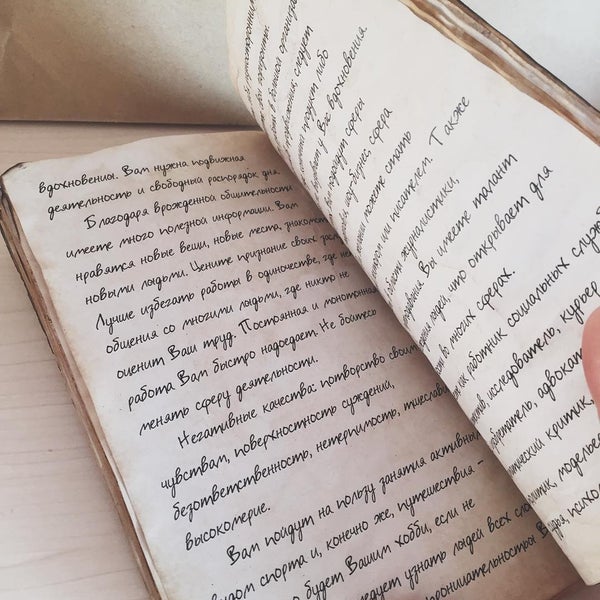 вдохновения. Вам нужна подвижная
деятельность и свободный распорядок дня.
Благодаря врожденной общительности
имеете много полезной информации. Вам
нравятся новые вещи, новые места,
новыми людьми. Цените признание своих
Лучше избегать работы в одиночестве, где
общения со многими людьми, где никто не
оценит Ваш труд. Постоянная и монотонная
работа Вам быстро надоедает. Не бойтесь
менять сферу деятельности.
Негативные качества: потворство своим
чувствам, поверхностность суждений,
безответственность, нетерпимость,
высокомерие.
Вам пойдут на пользу занятия активным
видом спорта и, конечно же, путешествия -
будет Вашим хобби, если не
узнать людей всех
следует
продукт либо
у Вас вдохновения
подойдут сферы
сфера
можете стать
или писателем. Также
журналистики,
Вы имеете талант
людей, что открывает для
во многих сферах.
как работник социальных
исследователь, курьер
адвокат
критик,